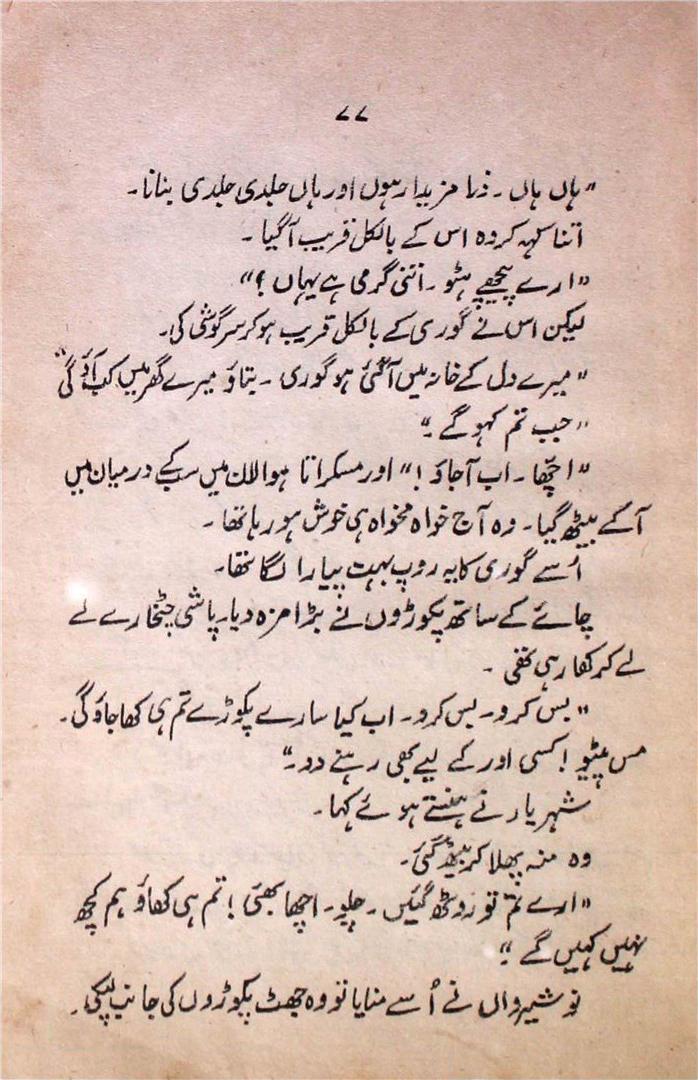 ۷۷
"ہاں ہاں ۔ ذرا مزیدار ہوں اور ہاں جلدی جلدی بنانا ۔
اتنا کہہ کر وہ اس کے بالکل قریب آگیا ۔
"ارے پیچھے ہٹو ۔ اتنی گرمی ہے یہاں ؟"
لیکن اس نے گوری کے بالکل قریب ہو کر سرگوشی کی۔
"میرے دل کے خانہ میں آگئی ہو گوری ۔ بتاؤ میرے گھر میں کب آؤ گی"
"جب تم کہو گے ۔"
"اچھا ۔ اب آجاؤ !" اور مسکراتا ہوا لان میں سب کے درمیان میں
آکے بیٹھ گیا ۔ وہ آج خواہ مخواہ ہی خوش ہو رہا تھا ۔
اُسے گوری کا یہ روپ بہت پیارا لگا تھا۔
چائے کے ساتھ پکوڑوں نے بڑا مزہ دیا۔ پاشی چٹخارے لے
لے کر کھا رہی تھی ۔
"بس کرو ۔ بس کرو ۔ اب کیا سارے پکوڑے تم ہی کھا جاؤ گی ۔
مس پیٹو ! کسی اور کے لیے بھی رہنے دو ۔"
شہریار نے ہنستے ہوئے کہا ۔
وہ منہ پھلا کر بیٹھ گئی ۔
"ارے تم تو روٹھ گئیں ۔ چلو ۔ اچھا بھئی ! تم ہی کھاؤ ہم کچھ
نہیں کہیں گے ۔"
نوشیرواں نے اُسے منایا تو وہ جھٹ پکوڑوں کی جانب لپکی ۔